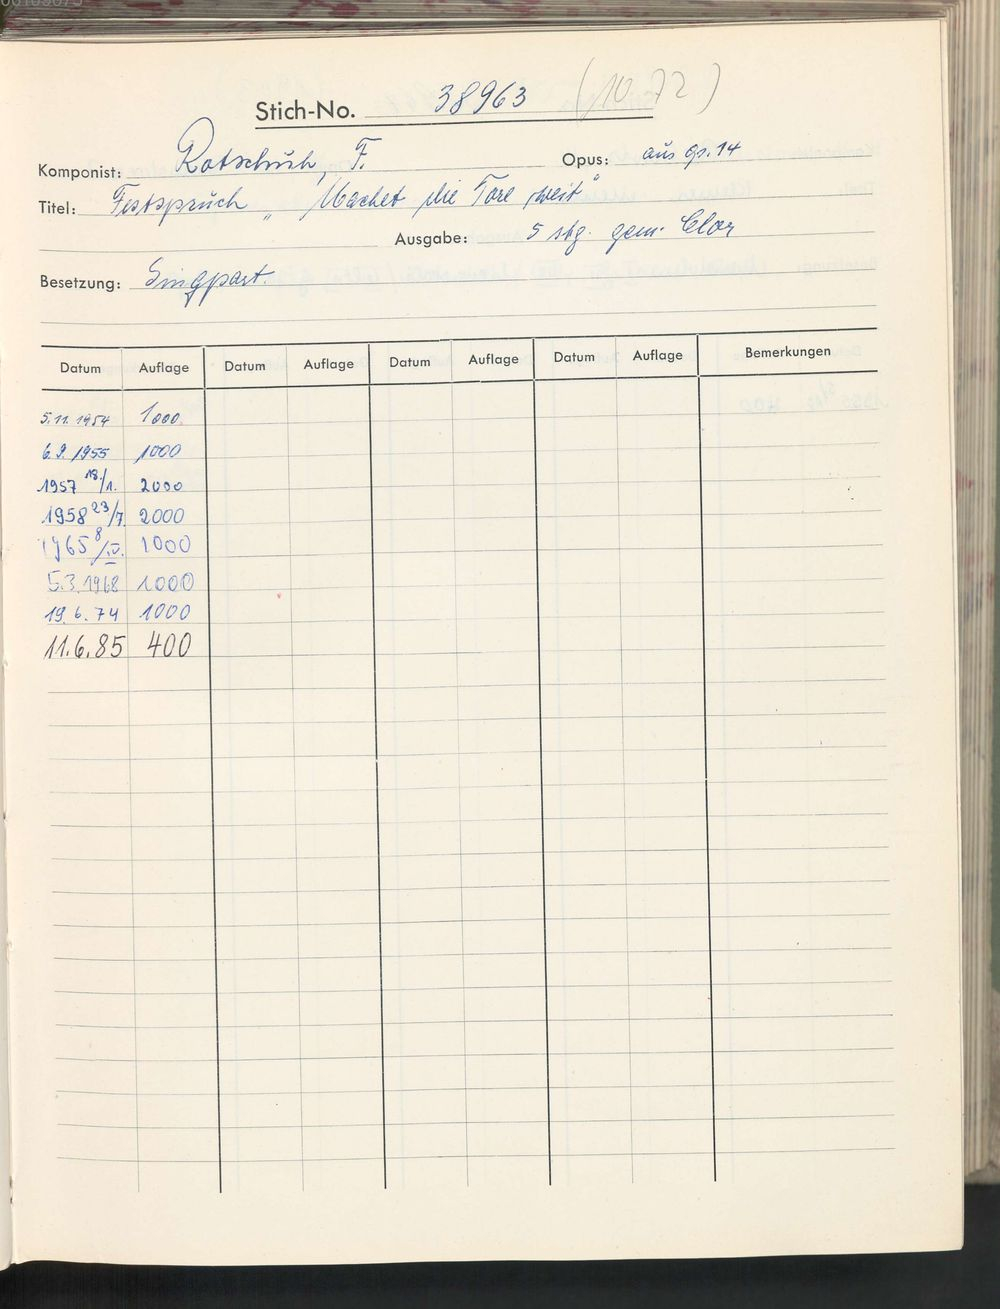 Stich-No. 38963 (10 72)
Komponist: Rotschuh, F. Opus: aus op. 14
Titel: Festspruch „Machet die Tore weit"
Ausgabe: 5 stg. gem. Chor
Besetzung: Singpart.
Datum Auflage Datum Auflage Datum Auflage Datum Auflage Bemerkungen
5.11.1954 1000
6.9.1955 1000
1957 18/1. 2000
1958 23/7. 2000
1965 8/IV. 1000
5.3.1968 1000
19.6.74 1000
11.6.85 400